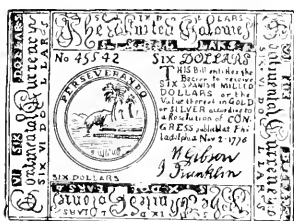 DOLLARS
The United Colonies
SIX DOLLARS
No 45542 SIX DOLLARS
THIS Bill entitles the
Bearer to receive
SIX SPANISH MILLED
DOLLARS or the
Value thereof in GOLD
or SILVER according to
a Resolution of CON-
GRESS publish'd at Phi-
ladelphia Nov. 2. 1776
PERSEVERANDO
W Gibson
J Franklin
SIX DOLLARS
Continental Currency
SIX DOLLARS
Continental Currency
SIX DOLLARS